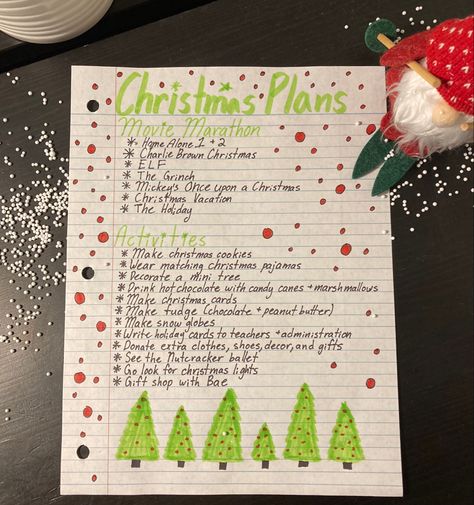 Christmas Plans
Movie Marathon
* Home Alone 1 + 2
* Charlie Brown Christmas
* ELF
* The Grinch
* Mickey's Once upon a Christmas
* Christmas Vacation
* The Holiday
Activities
* Make christmas cookies
* Wear matching christmas pajamas
* Decorate a mini tree
* Drink hot chocolate with candy canes + marshmallows
* Make christmas cards
* Make fudge (chocolate + peanut butter)
* Make snow globes
* Write holiday cards to teachers + administration
* Donate extra clothes, shoes, decor, and gifts
* See the Nutcracker ballet
* Go look for christmas lights
* Gift shop with Bae